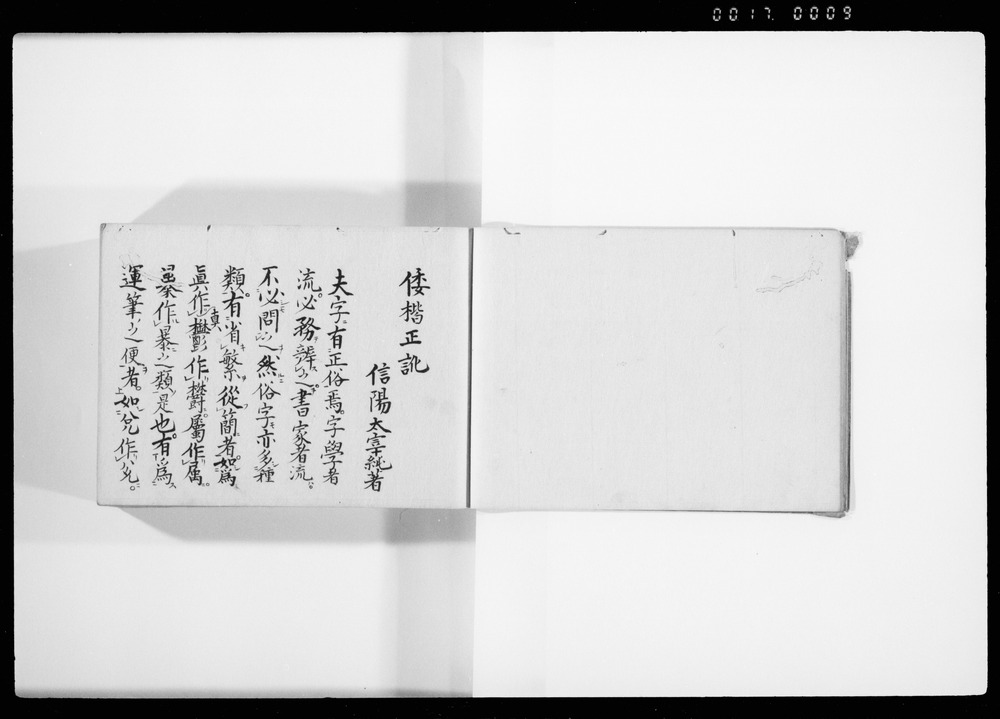 0017 0009
倭楷正訛
信陽太宰純著
夫字有正俗焉。字學者
流。必務辨之。書家者流。
不必問之。然俗字亦多種
類。有省繁從簡者。如爲
眞作真鬱作欝屬作属
作暴之類是也。有爲
運筆之便者。如兊作兑。